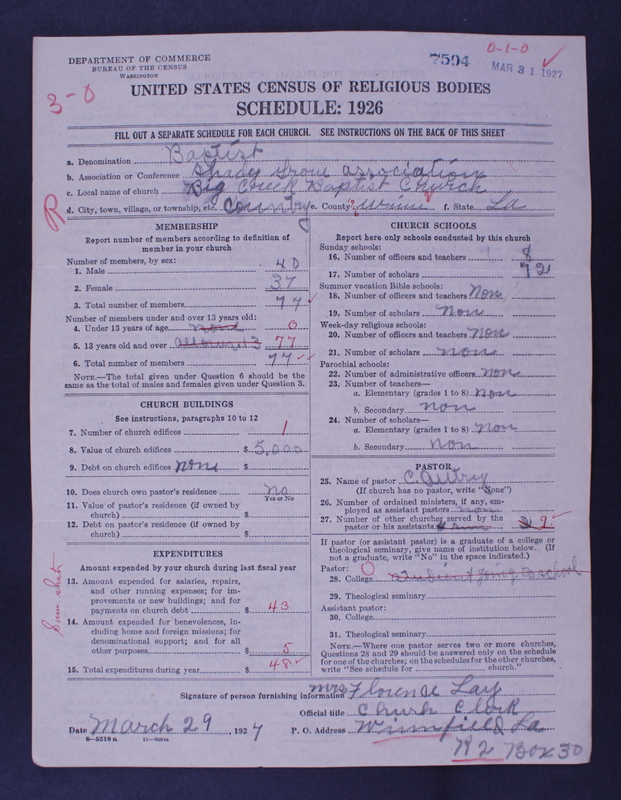 DEPARTMENT OF COMMERCE
BUREAU OF THE CENSUS
WASHINGTON
7594
0-1-0
MAR 31 1927
3-0
UNITED STATES CENSUS OF RELIGIOUS BODIES
SCHEDULE: 1926
FILL OUT A SEPARATE SCHEDULE FOR EACH CHURCH. SEE INSTRUCTIONS ON THE BACK OF THIS SHEET
a. Denomination Baptist
b. Association or Conference Shady Grove association
c. Local name of church Big Creek Baptist Church
R
d. City, town, village, or township, etc. Country e. County Winn f. State La
MEMBERSHIP
Report number of members according to definition of member in your church
Number of members, by sex:
1. Male 40
2. Female 37
3. Total number of members 77
Number of members under and over 13 years old:
4. Under 13 years of age none 0
5. 13 years old and over all over 13 77
6. Total number of members 77
NOTE.—The total given under Question 6 should be the same as the total of males and females given under Question 3.
CHURCH BUILDINGS
See instructions, paragraphs 10 to 12
7. Number of church edifices 1
8. Value of church edifices $ 5,000
9. Debt on church edifices none $
10. Does church own pastor's residence no
Yes or No
11. Value of pastor's residence (if owned by church) $
12. Debt on pastor's residence (if owned by church) $
EXPENDITURES
Amount expended by your church during last fiscal year
13. Amount expended for salaries, repairs, and other running expenses; for improvements or new buildings; and for payments on church debt $ 43
14. Amount expended for benevolences, including home and foreign missions; for denominational support; and for all other purposes $ 5
15. Total expenditures during year $ 48
CHURCH SCHOOLS
Report here only schools conducted by this church
Sunday schools:
16. Number of officers and teachers 8
17. Number of scholars 72
Summer vacation Bible schools:
18. Number of officers and teachers Non
19. Number of scholars Non
Week-day religious schools:
20. Number of officers and teachers Non
21. Number of scholars non
Parochial schools:
22. Number of administrative officers non
23. Number of teachers—
a. Elementary (grades 1 to 8) non
b. Secondary non
24. Number of scholars—
a. Elementary (grades 1 to 8) non
b. Secondary non
PASTOR
25. Name of pastor C. Autry
(If church has no pastor, write "None")
26. Number of ordained ministers, if any, employed as assistant pastors non
27. Number of other churches served by the pastor or his assistants 9
If pastor (or assistant pastor) is a graduate of a college or theological seminary, give name of institution below. (If not a graduate, write "No" in the space indicated.)
Pastor: 0
28. College going to school
29. Theological seminary
Assistant pastor:
30. College
31. Theological seminary
NOTE.—Where one pastor serves two or more churches, Questions 28 and 29 should be answered only on the schedule for one of the churches; on the schedules for the other churches, write "See schedule for church."
Signature of person furnishing information Mrs Florence Lay
Official title Church Clerk
Date March 29, 1927 P. O. Address Winnfield La
R 2 Box 30
8-5518 a